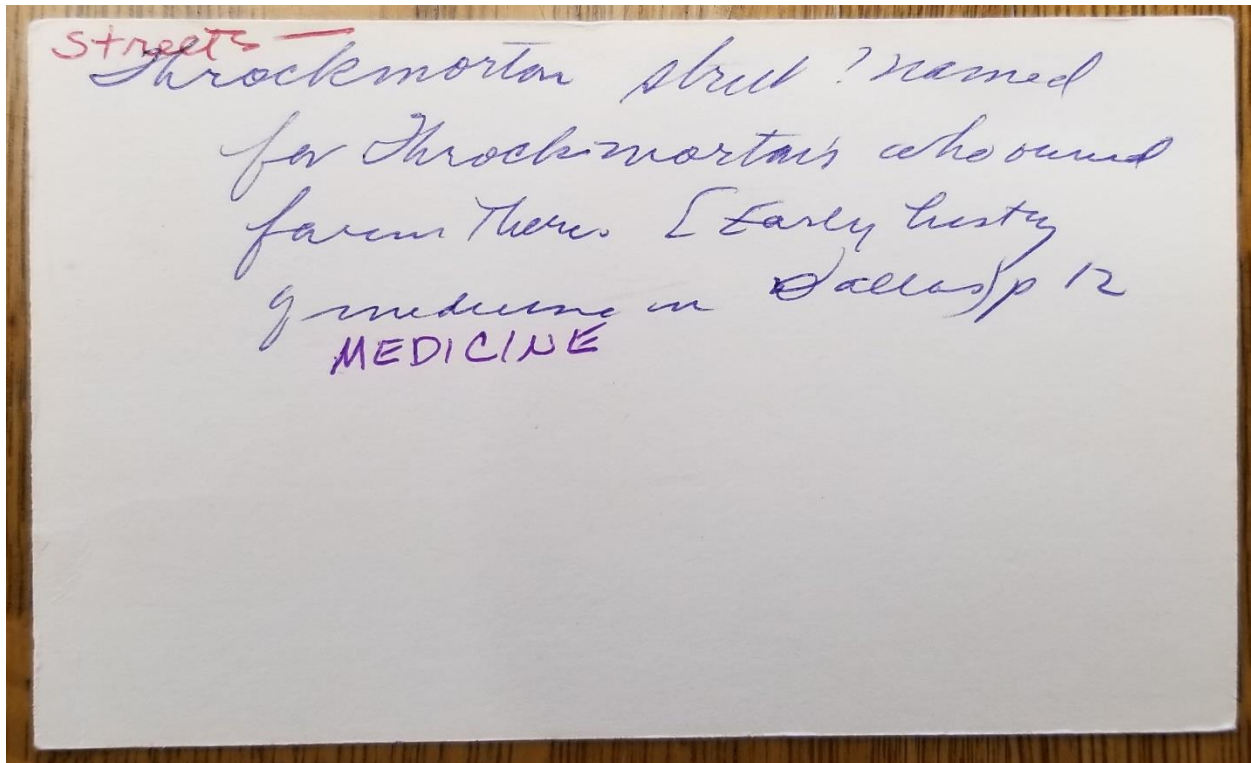 Streets —
Throckmorton street ? named
for Throckmorton's who owned
farm there. [Early history
of medicine in Dallas) p 12
MEDICINE